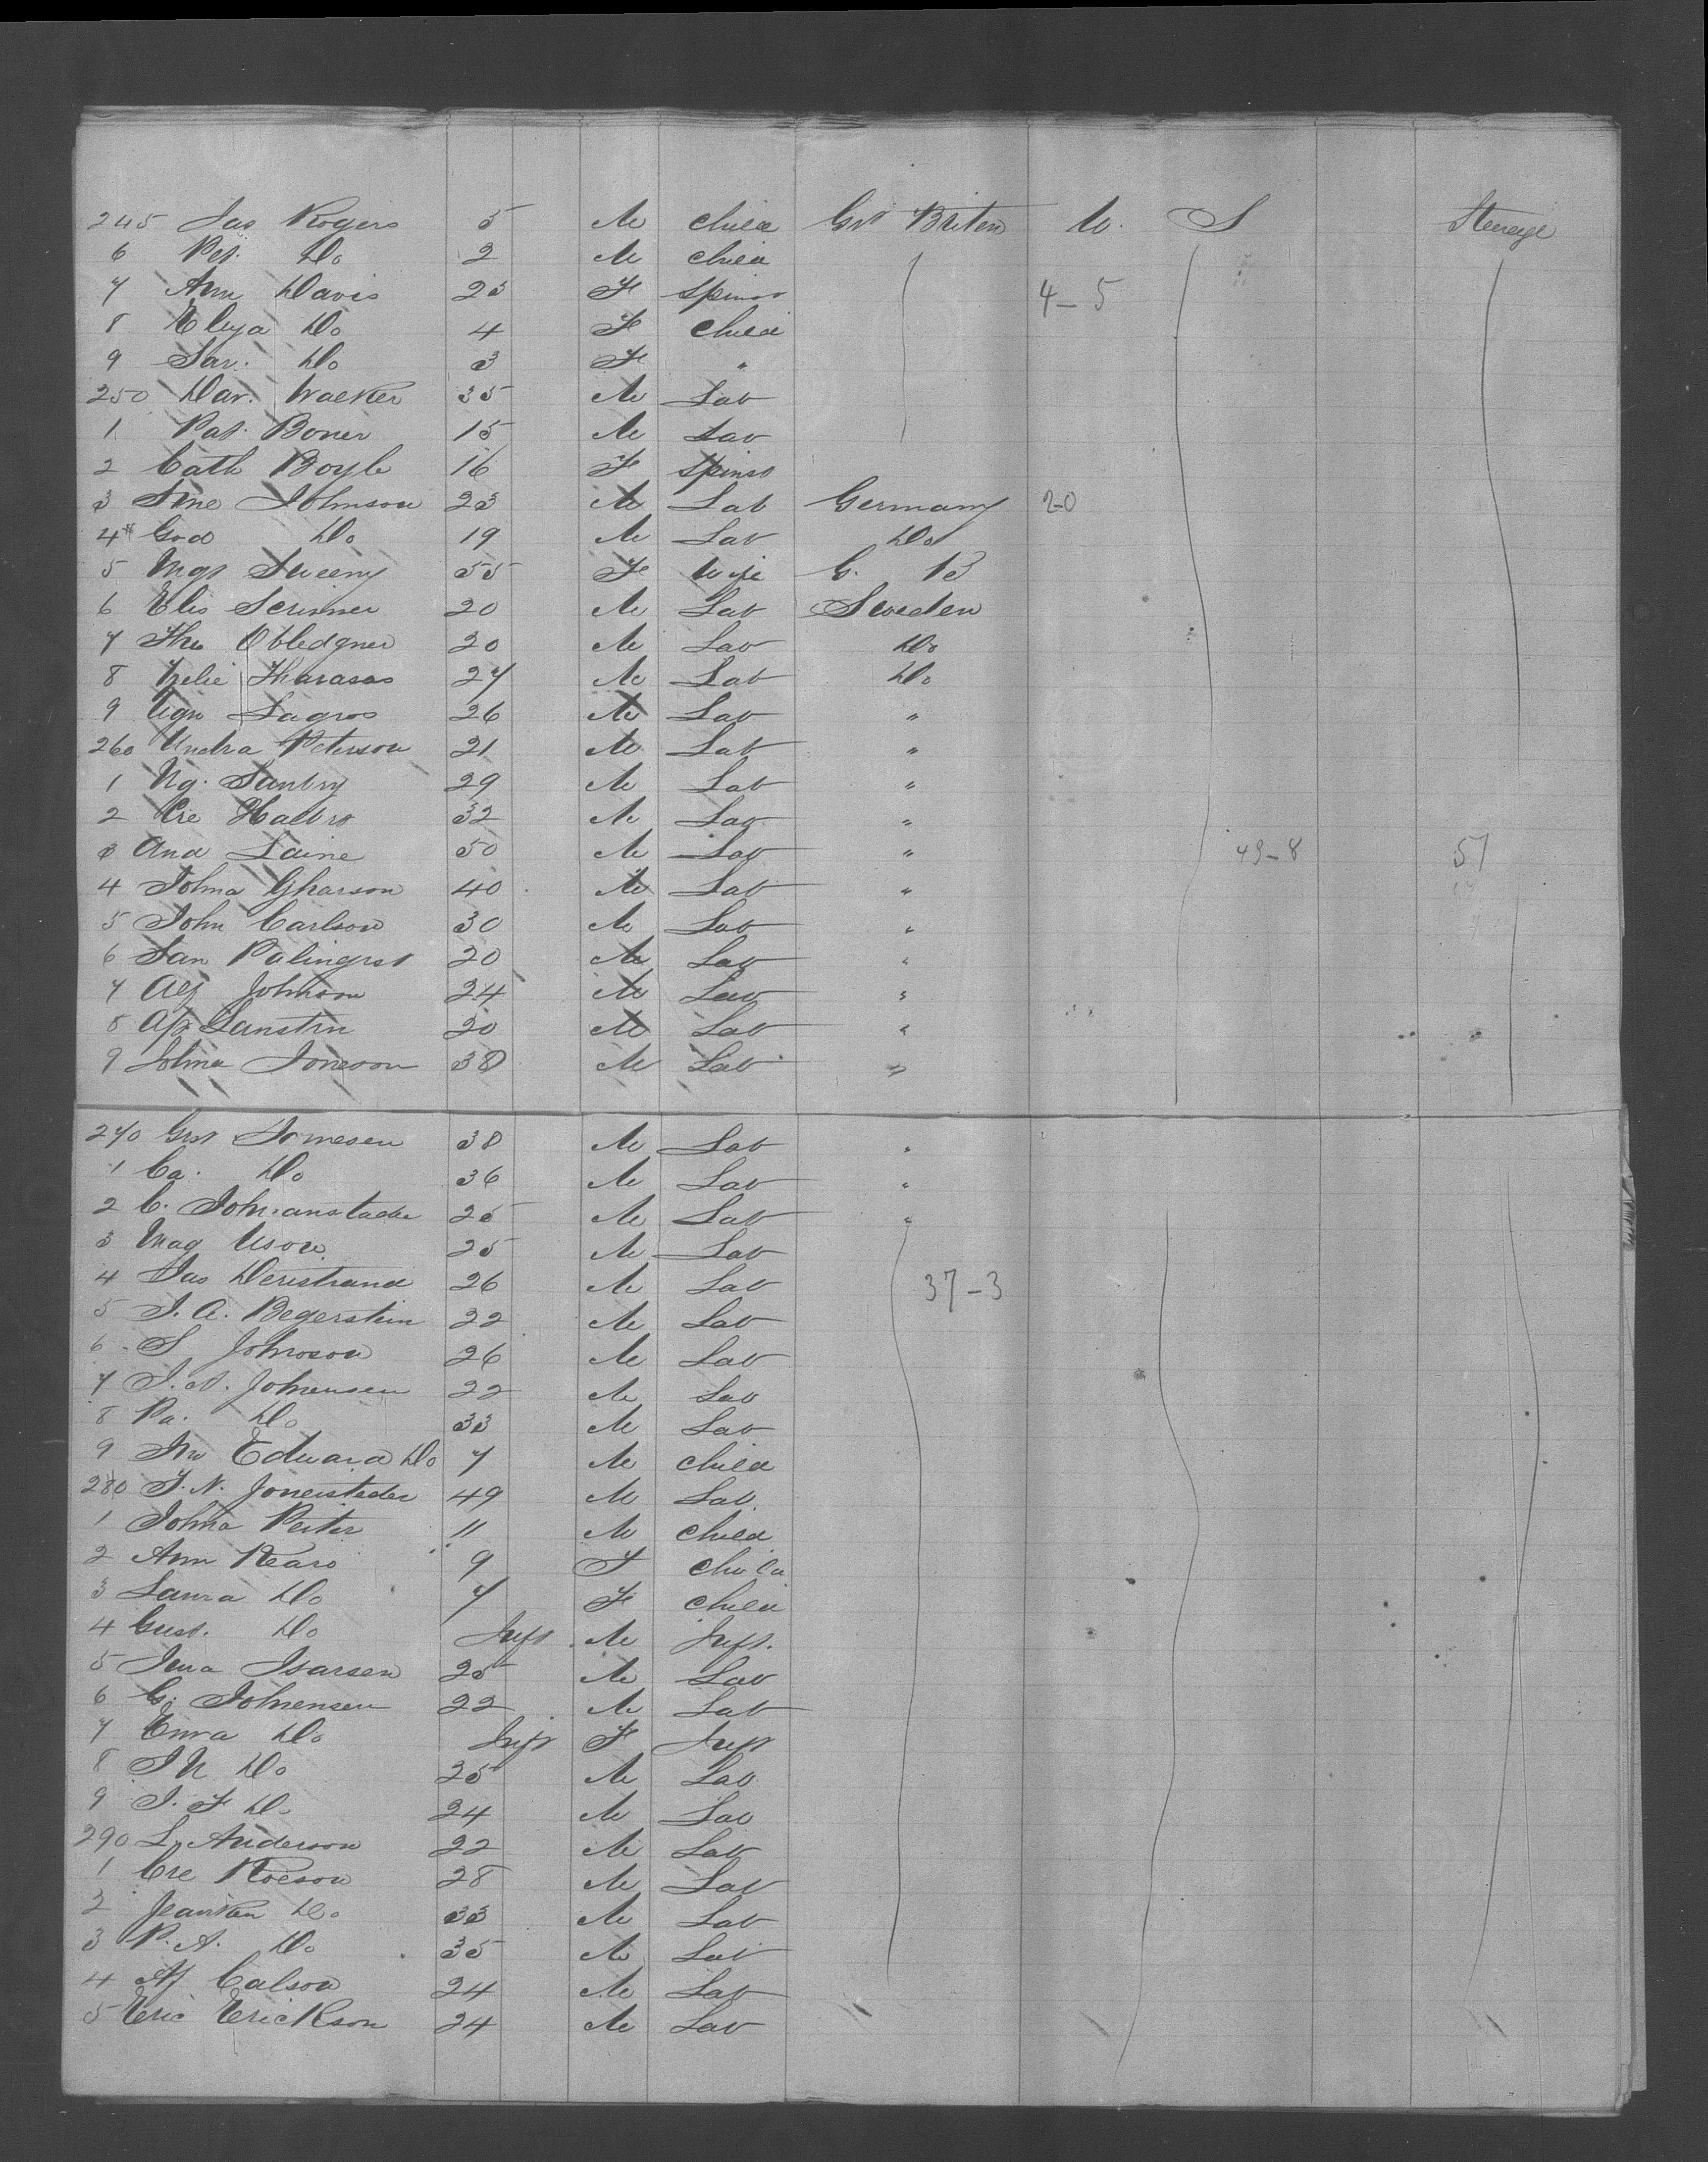 245 Jas Rogers 5 M Child Grt Briten U. S Steerage
6 Pat. Do 2 M Child
7 Ann Davis 23 F Spinst 4-5
8 Eliza Do 4 F Child
9 Sar. Do 3 F "
250 Dav. Walker 35 M Lab
1 Pat. Boner 15 M Lab
2 Cath Boyle 16 F Spinst
3 Johnson 23 M Lab Germany 20
4 God Do 19 M Lab Do
5 Mgt Sweeny 55 F Wife G. B
6 Elis Scrinner 20 M Lab Sweden
7 20 M Lab Do
8 Tharasas 27 M Lab Do
9 Lagros 26 M Lab "
260 Andra Peterson 21 M Lab "
1 Ng. 29 M Lab "
2 Cre 32 M Lab "
3 And Laine 50 M Lab " 49-8 57
4 Johna Gharson 40 M Lab "
5 John Carlson 30 M Lab "
6 San Palingrst 20 M Lab "
7 Alf Johnson 24 M Lab "
8 20 M Lab "
9 Johna Joneson 38 M Lab "
270 Gust 38 M Lab "
1 Ca. Do 36 M Lab "
2 C. Johnanstader 25 M Lab "
3 Mag 25 M Lab
4 Jas Deristrand 26 M Lab 37-3
5 J. A. Begerstein 22 M Lab
6 S Johnson 26 M Lab
7 Johnensen 22 M Lab
8 Pa. Do 33 M Lab
9 Jno Edward Do 7 M Child
280 J. N. Joneisteder 49 M Lab.
1 Johna Peiter 11 M Child
2 Ann 9 F Child
3 Laura Do 7 F Child
4 Gust. Do Inft M Inft.
5 Isarsen 25 M Lab
6 G. Johnensen 22 M Lab
7 Emra Do Inft F Inft
8 Do 25 M Lab
9 J. F Do 24 M Lab
290 L. Anderson 22 M Lab
1 Cre 28 M Lab
2 Do 33 M Lab
3 P. A. Do 35 M Lab
4 Calson 24 M Lab
5 Eric Erickson 24 M Lab